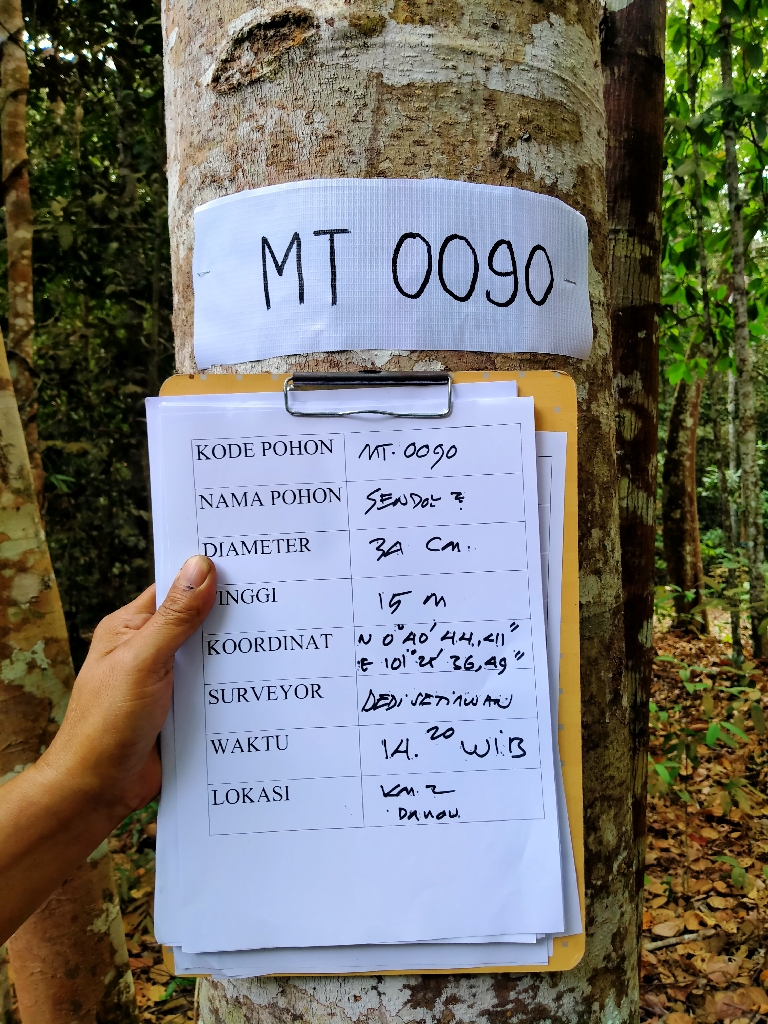 MT 0090
KODE POHON MT. 0090
NAMA POHON
DIAMETER 34 cm.
INGGI 15 m
KOORDINAT N 0° 40' 44,411"
E 101° 36,49"
SURVEYOR DEDI SETIAWAN
WAKTU 14.20 WIB
LOKASI KM. 2
Danau